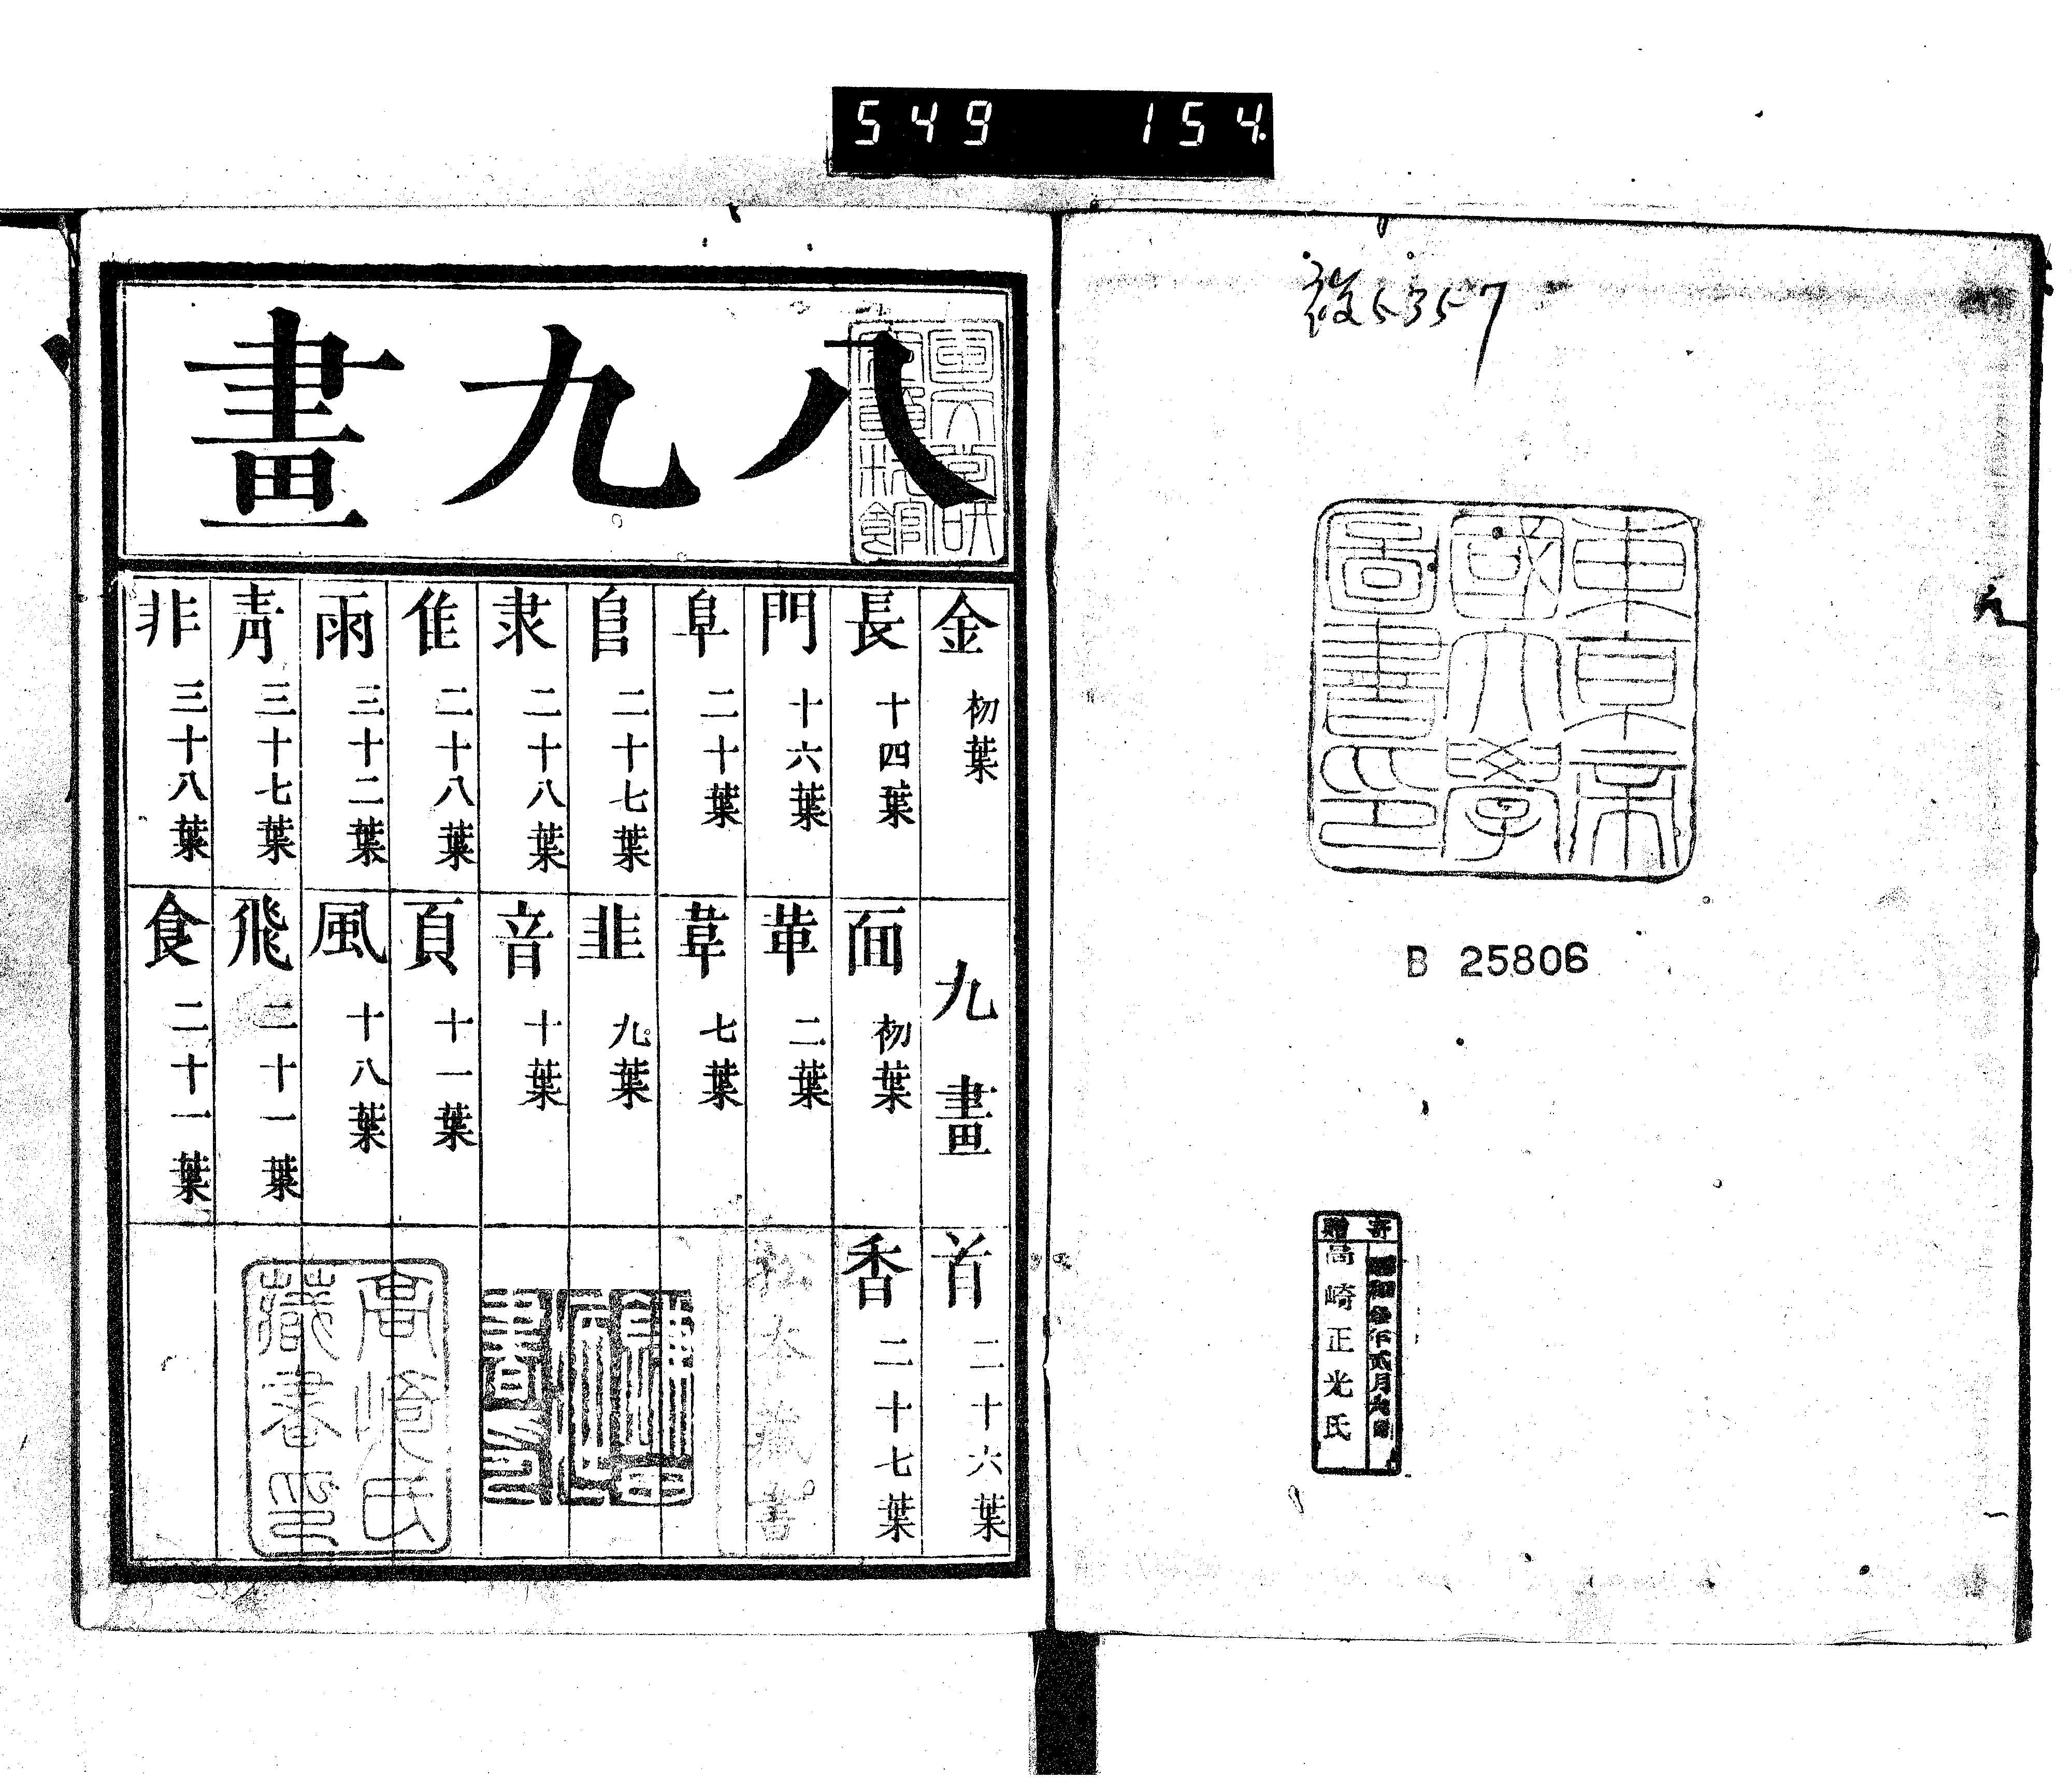 549 154
複5357
東京帝國大學圖書印
B 25806
寄贈
高崎正光氏
八九畫
金 初葉
長 十四葉
門 十六葉
阜 二十葉
𨸏 二十七葉
隶 二十八葉
隹 二十八葉
雨 三十二葉
靑 三十七葉
非 三十八葉
九畫
面 初葉
革 二葉
韋 七葉
韭 九葉
音 十葉
頁 十一葉
風 十八葉
飛 二十一葉
食 二十一葉
首 二十六葉
香 二十七葉
松本藏書
高崎氏藏書印